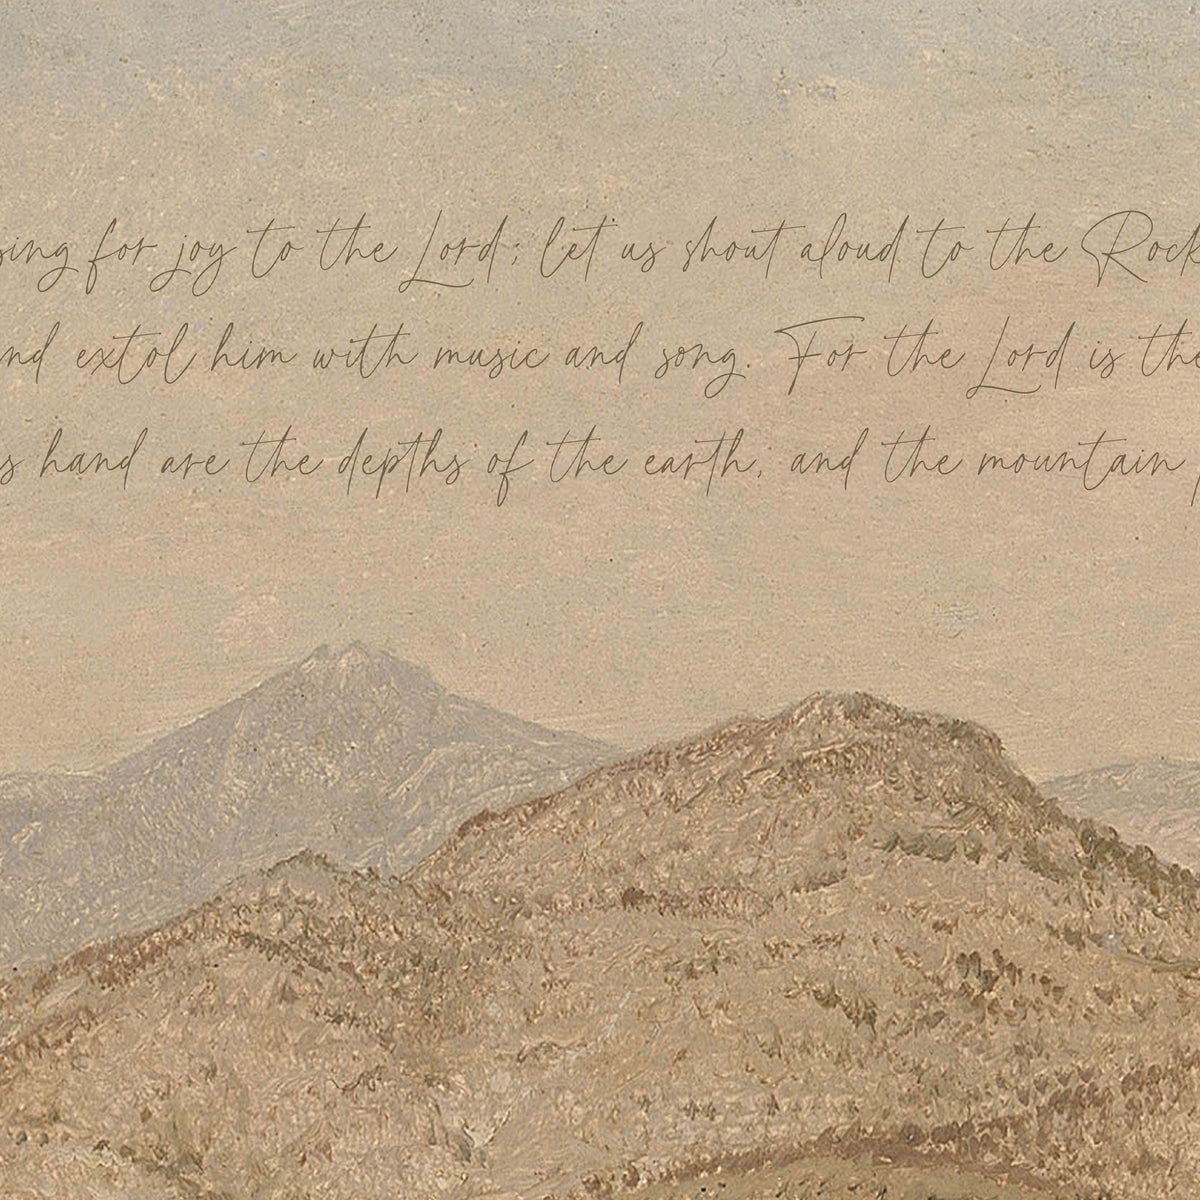 sing for joy to the Lord; let us shout aloud to the Rock
nd extol him with music and song. For the Lord is the
s hand are the depths of the earth, and the mountain p